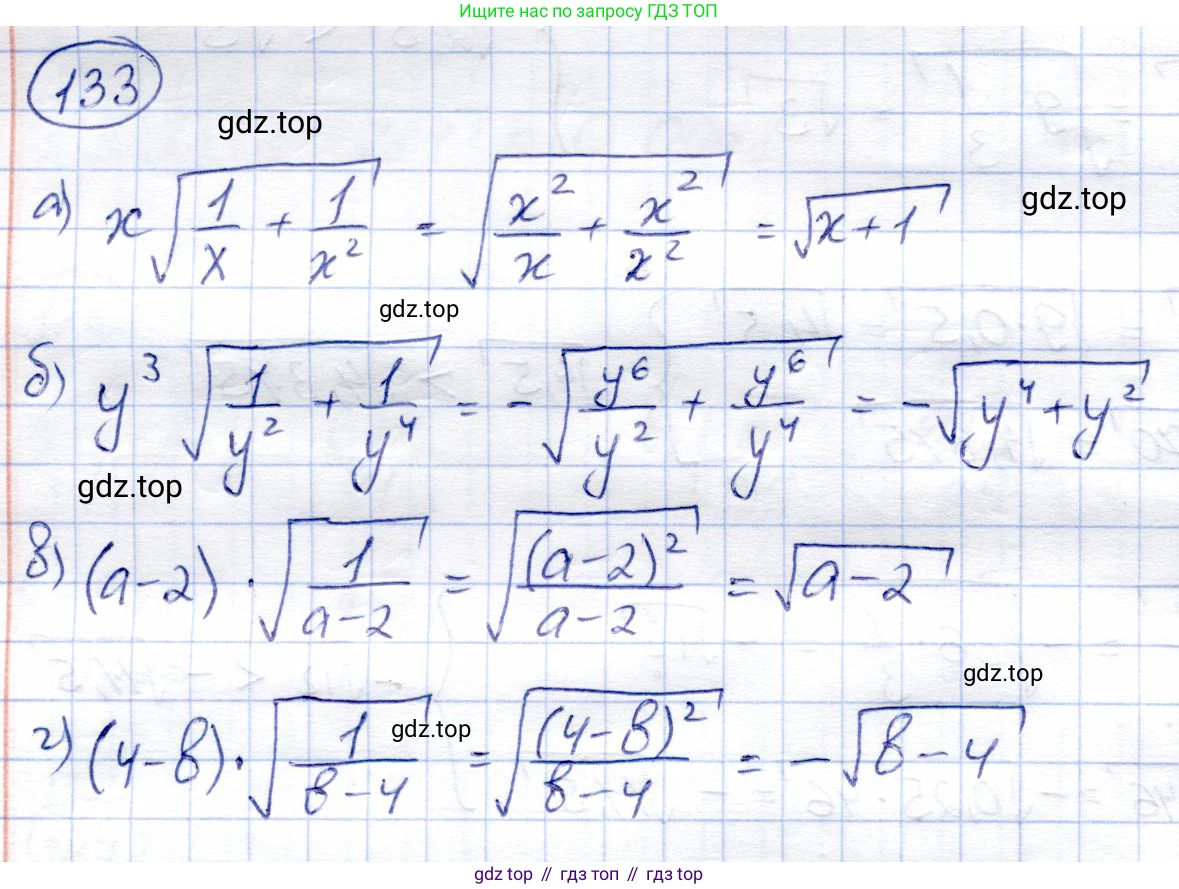 Ищите нас по запросу ГДЗ ТОП
133
gdz.top
а) x√(1/x + 1/x²) = √(x²/x + x²/x²) = √(x+1)
gdz.top
gdz.top
б) y³ √(1/y² + 1/y⁴) = -√(y⁶/y² + y⁶/y⁴) = -√(y⁴+y²)
gdz.top
в) (a-2) · √(1/(a-2)) = √((a-2)²/(a-2)) = √(a-2)
gdz.top
г) (4-в) · √(1/(в-4)) = √((4-в)²/(в-4)) = -√(в-4)
gdz.top
gdz top // гдз топ // gdz top